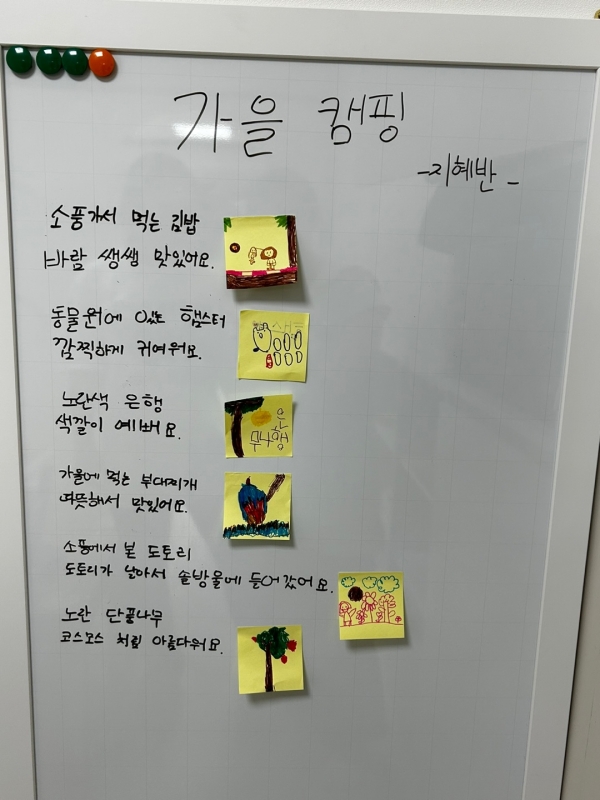 가을 캠핑
-지혜반-
소풍가서 먹는 김밥
바람 쌩쌩 맛있어요.
동물원에 있는 햄스터
깜찍하게 귀여워요.
노란색 은행
색깔이 예뻐요.
은행
나무
가을에 먹는 부대찌개
따뜻해서 맛있어요.
소풍에서 본 도토리
도토리가 날아서 솔방울에 들어갔어요.
노란 단풍나무
코스모스 처럼 아름다워요.